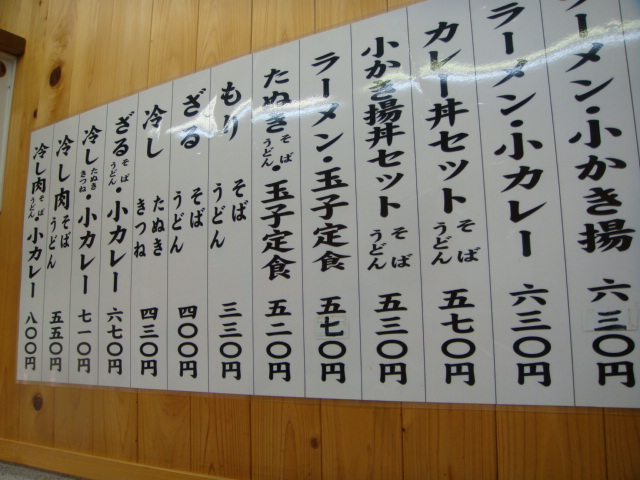 ラーメン・小かき揚 六三〇円
ラーメン・小カレー 六三〇円
カレー丼セット そば うどん 五七〇円
小かき揚丼セット そば うどん 五三〇円
ラーメン・玉子定食 五七〇円
たぬき そば うどん・玉子定食 五二〇円
もり そば うどん 三三〇円
ざる そば うどん 四〇〇円
冷し たぬき きつね 四三〇円
ざる そば うどん・小カレー 六七〇円
冷し たぬき きつね・小カレー 七一〇円
冷し肉 そば うどん 五五〇円
冷し肉 そば うどん 小カレー 八〇〇円